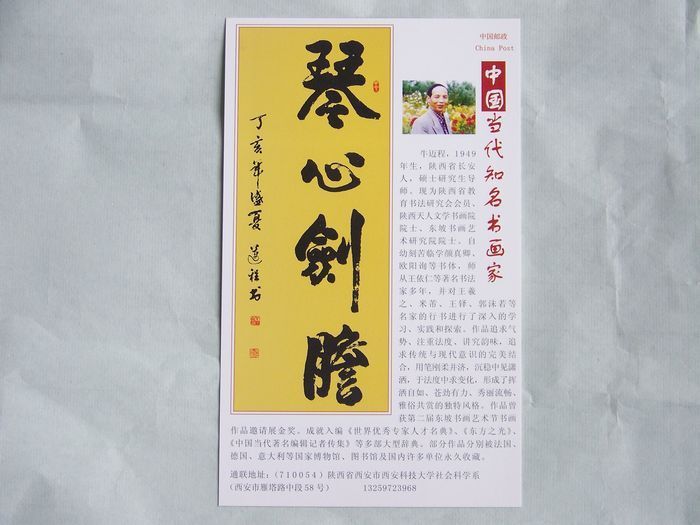 中国邮政
China Post
中国当代知名书画家
琴心剑胆
丁亥年盛夏 迈程书
牛迈程，1949
年生，陕西省长安
人，硕士研究生导
师。现为陕西省教
育书法研究会会员、
陕西天人文学书画院
院士、东坡书画艺
术研究院院士。自
幼刻苦临学颜真卿、
欧阳询等书体，师
从王依仁等著名书法
家多年，并对王羲
之、米芾、王铎、郭沫若等
名家的行书进行了深入的学
习、实践和探索。作品追求气
势、注重法度、讲究韵味，追
求传统与现代意识的完美结
合，用笔刚柔并济，沉稳中见潇
洒，于法度中求变化，形成了挥
洒自如、苍劲有力、秀丽流畅、
雅俗共赏的独特风格。作品曾
获第二届东坡书画艺术节书画
作品邀请展金奖。成就入编《世界优秀专家人才名典》、《东方之光》、
《中国当代著名编辑记者传集》等多部大型辞典。部分作品分别被法国、
德国、意大利等国家博物馆、图书馆及国内许多单位永久收藏。
通联地址：(710054) 陕西省西安市西安科技大学社会科学系
（西安市雁塔路中段58号） 13259723968